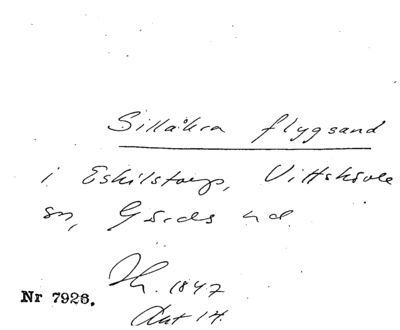 Sillåkra flygsand
i Eskilstorp, Vittskövle
sn, Gärds hd.
1847
Nr 7926.
Akt 14.